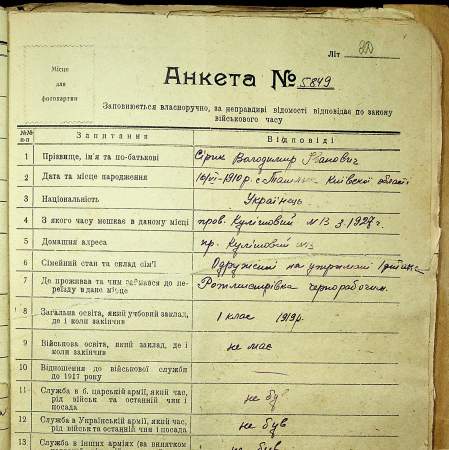 Літ
Місце
для
фотокартки
Анкета № 5849
Заповнюється власноручно, за неправдиві відомості відповідає по закону
військового часу
№№ п-п Запитання Відповіді
1 Прізвище, ім'я та по-батькові Сірик Володимир Іванович
2 Дата та місце народження 1910 р. с. Ташлик Київскої області
3 Національність Українець
4 З якого часу мешкає в даному місці пров. Кулішовий М 13 з 1927 г.
5 Домашня адреса пр. Кулішовий М 13
6 Сімейний стан та склад сім'ї Одружений на утриманні
7 Де проживав та чим займався до пе-
реїзду в дане місце чорнорабочим.
8 Загальна освіта, який учбовий заклад,
де і коли закінчив 1 клас 1919 р.
9 Військова освіта, який заклад, де і
коли закінчив не має
10 Відношення до військової служби
до 1917 року —
11 Служба в б. царській армії, який час,
рід військ та останній чин і
посада не був
12 Служба в Українській армії, який час,
рід військ та останній чин і посада не був
13 Служба в інших арміях (за винятком не був